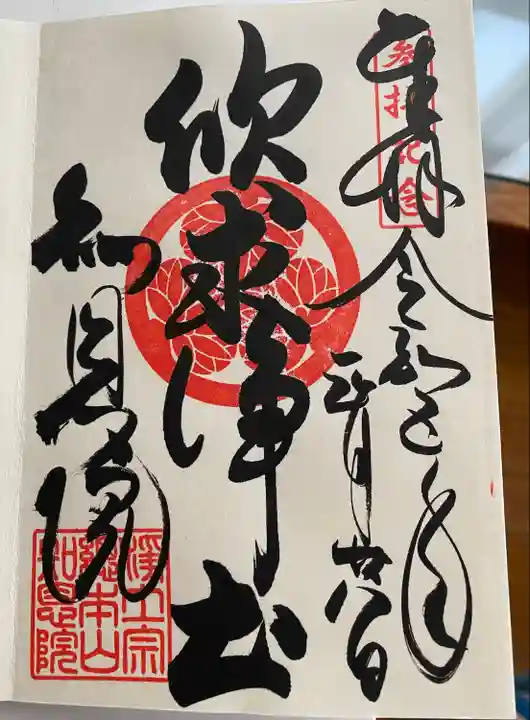 奉拝
参拝記念
令和五年
二月廿八日
欣求浄土
知恩院
浄土宗
総本山
知恩院